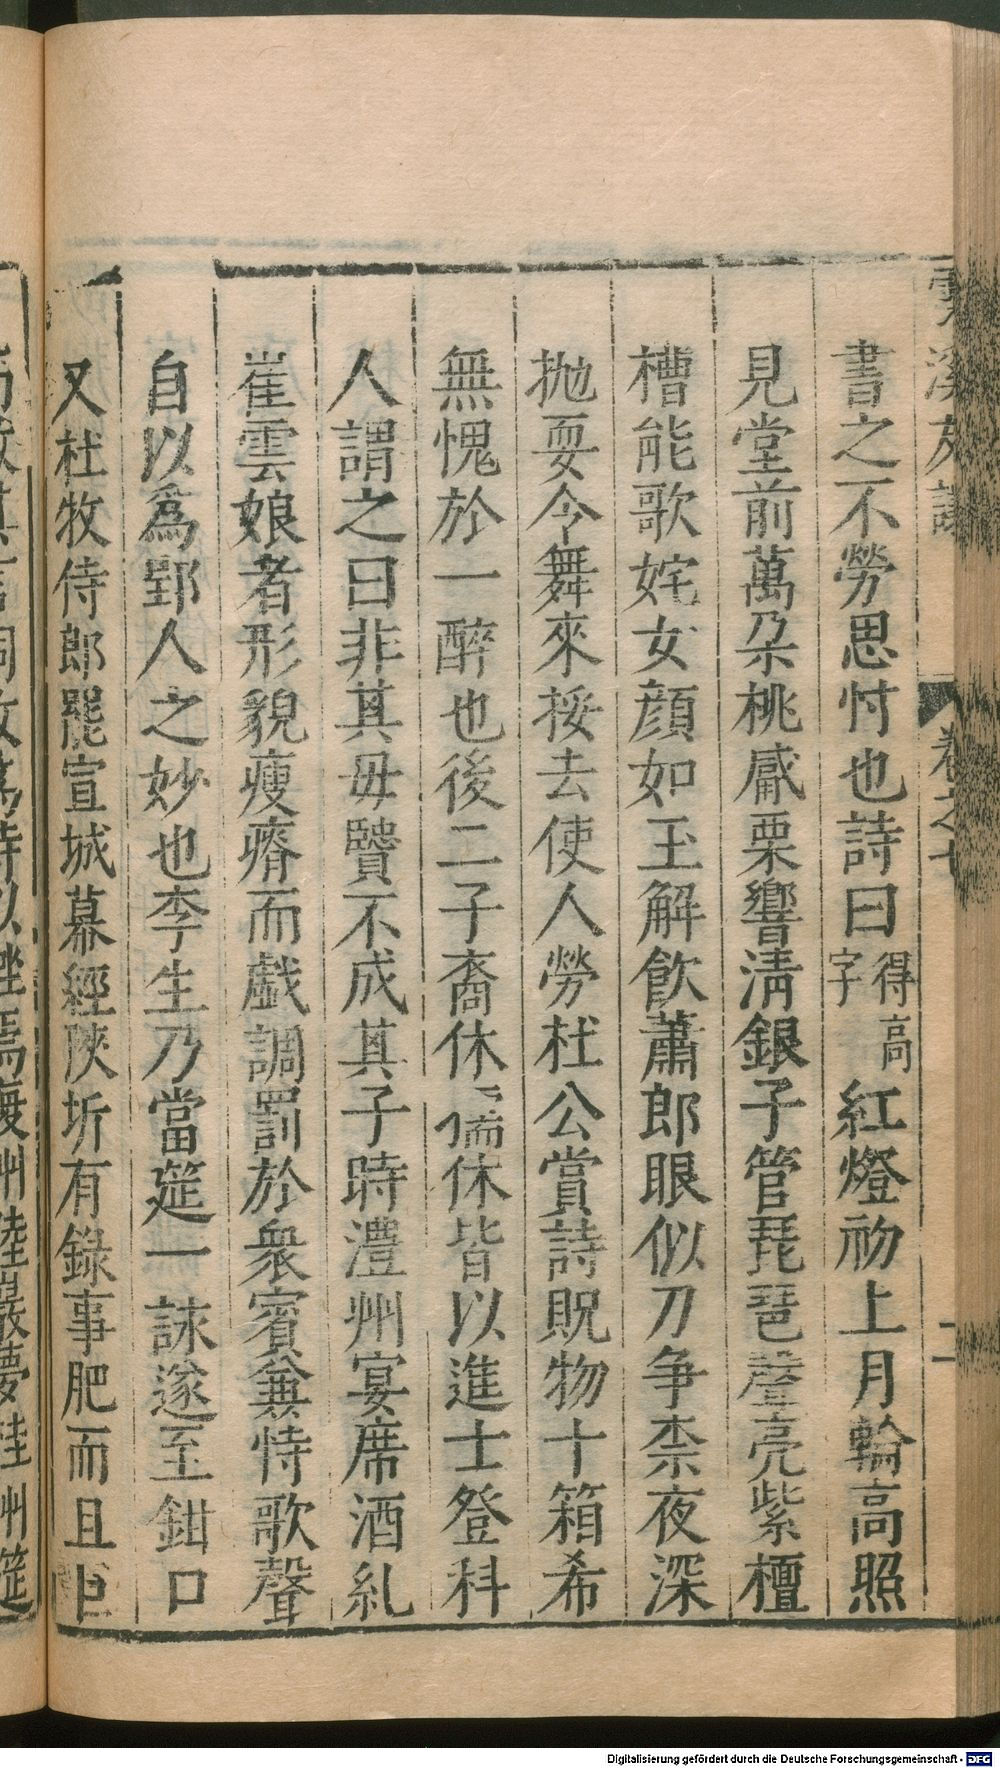 書之不勞思忖也詩曰得高字紅燈初上月輪高照
見堂前萬朵桃觱栗響清銀子管琵琶聲亮紫檀
槽能歌姹女顔如玉解飲蕭郎眼似刀争柰夜深
抛耍令舞來挼去使人勞杜公賞詩貺物十箱希
無愧於一醉也後二子裔休儒休皆以進士登科
人謂之曰非其母贒不成其子時澧州宴席酒糺
崔雲娘者形貌瘦瘠而戲調罰於衆賓兼恃歌聲
自以爲郢人之妙也李生乃當筵一詠遂至鉗口
又杜牧侍郎罷宣城幕經陝圻有錄事肥而且巨
Digitalisierung gefördert durch die Deutsche Forschungsgemeinschaft - DFG